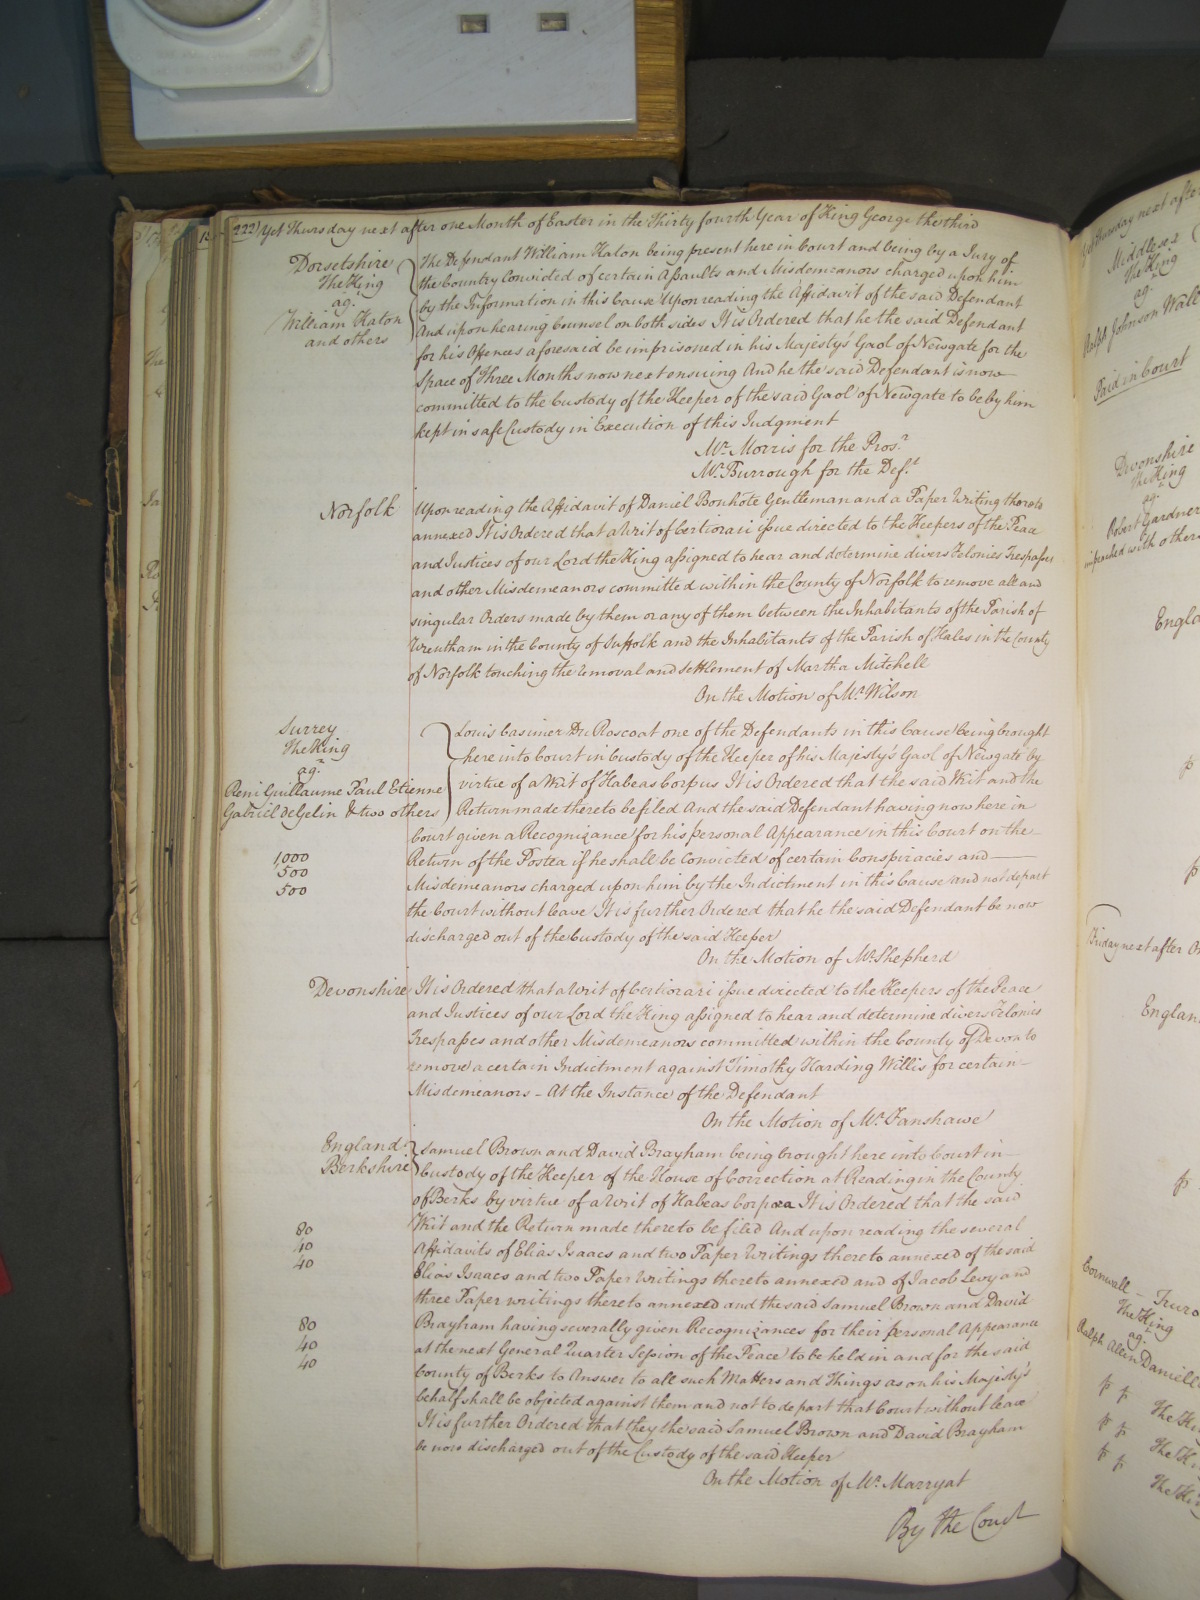 222) Yet Thursday next after one Month of Easter in the Thirty fourth Year of King George the third
Dorsetshire
The King
agt
William Haton
and others
The Defendant William Haton being present here in Court and being by a Jury of
the Country Convicted of certain Assaults and Misdemeanors charged upon him
by the Information in this Cause Upon reading the Affidavit of the said Defendant
And upon hearing Counsel on both sides It is Ordered that he the said Defendant
for his Offences aforesaid be imprisoned in his Majesty's Gaol of Newgate for the
Space of Three Months now next ensuing And he the said Defendant is now
committed to the Custody of the Keeper of the said Gaol of Newgate to be by him
kept in safe Custody in Execution of this Judgment
Mr Morris for the Prosr
Mr Burrough for the Deft
Norfolk
Upon reading the Affidavit of Daniel Bonhote Gentleman and a Paper Writing thereto
annexed It is Ordered that a Writ of Certiorari issue directed to the Keepers of the Peace
and Justices of our Lord the King assigned to hear and determine divers Felonies Trespasses
and other Misdemeanors committed within the County of Norfolk to remove all and
singular Orders made by them or any of them between the Inhabitants of the Parish of
Wrentham in the County of Suffolk and the Inhabitants of the Parish of Hales in the County
of Norfolk touching the removal and settlement of Martha Mitchell
On the Motion of Mr Wilson
Surrey
The King
agt
Reni Guillaume Paul Etienne
Gabriel deGelin & two others
1,000
500
500
Louis Casimer Du Roscoat one of the Defendants in this Cause being brought
here into Court in Custody of the Keeper of his Majesty's Gaol of Newgate by
virtue of a Writ of Habeas Corpus It is Ordered that the said Writ and the
Return made thereto be filed And the said Defendant having now here in
Court given a Recognizance for his personal Appearance in this Court on the
Return of the Postea if he shall be Convicted of certain Conspiracies and
Misdemeanors charged upon him by the Indictment in this Cause and not depart
the Court without leave It is further Ordered that he the said Defendant be now
discharged out of the Custody of the said Keeper
On the Motion of Mr Shepherd
Devonshire
It is Ordered that a Writ of Certiorari issue directed to the Keepers of the Peace
and Justices of our Lord the King assigned to hear and determine divers Felonies
Trespasses and other Misdemeanors committed within the County of Devon to
remove a certain Indictment against Timothy Harding Willis for certain
Misdemeanors - At the Instance of the Defendant
On the Motion of Mr Fanshawe
England
Berkshire
80
40
40
80
40
40
Samuel Brown and David Brayham being brought here into Court in
Custody of the Keeper of the House of Correction at Reading in the County
of Berks by virtue of a Writ of Habeas Corpora It is Ordered that the said
Writ and the Return made thereto be filed And upon reading the several
Affidavits of Elias Isaacs and two Paper Writings thereto annexed of the said
Elias Isaacs and two Paper Writings thereto annexed and of Jacob Levy and
three Paper writings thereto annexed and the said Samuel Brown and David
Brayham having severally given Recognizances for their personal Appearance
at the next General Quarter Session of the Peace to be held in and for the said
County of Berks to Answer to all such Matters and Things as on his Majesty's
behalf shall be objected against them and not to depart that Court without leave
It is further Ordered that they the said Samuel Brown and David Brayham
be now discharged out of the Custody of the said Keeper
On the Motion of Mr Marryat
By the Court
Thursday next after
Middlesex
The King
agt
Ralph Johnson Wall
Paid in Court
Devonshire
The King
agt
Robert Gardner
impeached with others
Engla
p
p
Friday next after
Englan
p
Cornwall - Truro
The King
agt
Ralph Allen Daniell
p p
p p The Ki
p p The Ki
The Kin